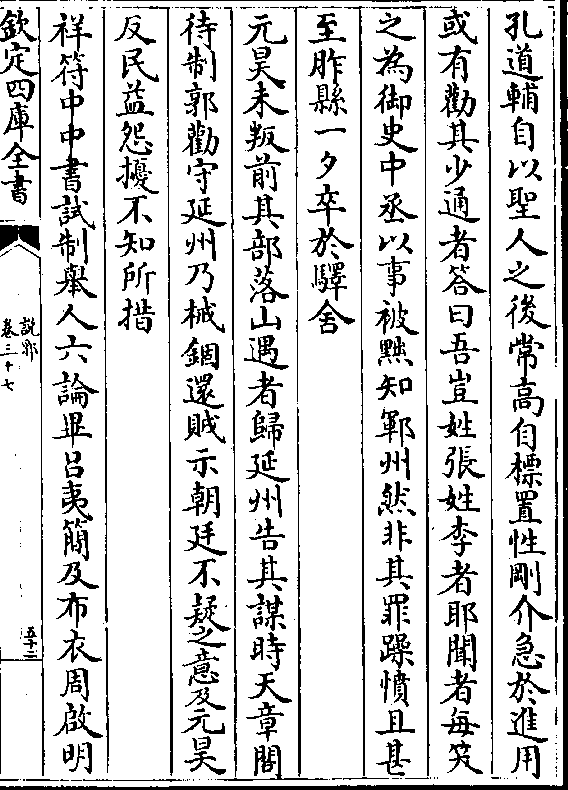 孔道輔自以聖人之後常高自標置性剛介急於進用
或有勸其少通者答曰吾豈姓張姓李者耶聞者每笑
之為御史中丞以事被黜知鄆州然非其罪躁憤且甚
至胙縣一夕卒於驛舍
元昊未叛前其部落山遇者歸延州告其謀時天章閣
待制郭勸守延州乃械錮還賊示朝廷不疑之意及元昊
反民益怨擾不知所措
祥符中中書試制舉人六論畢呂夷簡及布衣周啟明
欽定四庫全書
說郛
卷三十七
五十三